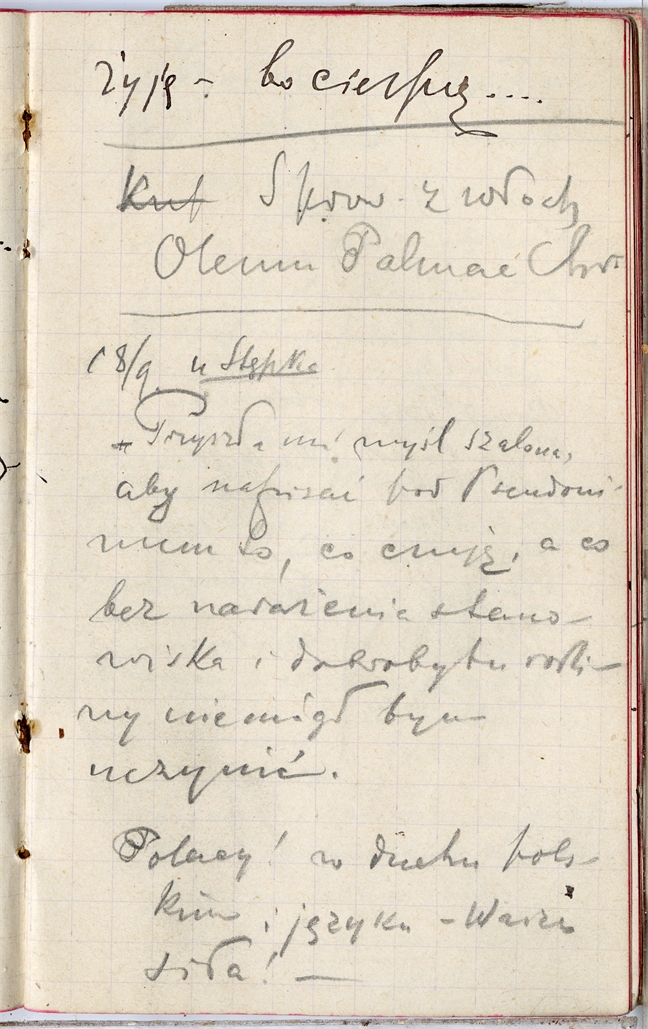 żyję – bo cierpię....
Sprow. z włoch
Oleum Palmae Chr
18/9. u Stępka
– Przyszła mi myśl szalona,
aby napisać pod Pseudoni-
mem to, co czuję, a co
bez narażenia stano-
wiska i dobrobytu rodzi-
ny nie mógł bym
uczynić.
Polacy! w duchu pols-
kim i języku – Wasza
siła! —